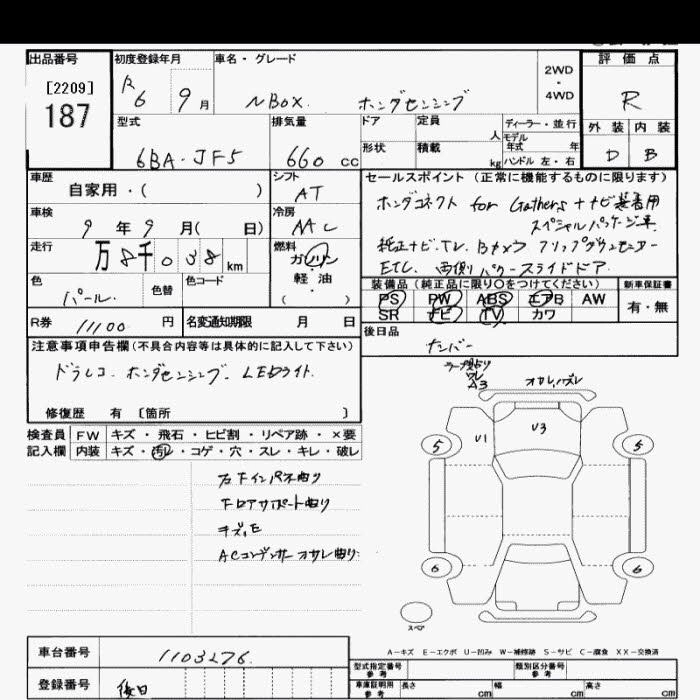 出品番号
[2209]
187
初度登録年月
R6 9月
車名・グレード
NBOX. ホンダセンシング
2WD
・
4WD
評価点
R
外装 内装
D B
型式
6BA-JF5
排気量
660 cc
ドア
定員
人
形状
積載
kg
ディーラー・並行
モデル
年式 年
ハンドル 左・右
車歴
自家用・( )
シフト
AT
車検
9年9月( 日)
冷房
AAC
走行
万8千038km
燃料
ガソリン
軽油
( )
色
パール.
色替
色コード
R券
11100円
名変通知期限 月 日
セールスポイント (正常に機能するものに限ります)
ホンダコネクト for Gathers+ナビ装着用
スペシャルパッケージ車
純正ナビ.TV. Bカメラ フリップダウンモニター
ETC. 両側パワースライドドア
装備品 (純正品に限り○をつけてください)
PS PW ABS エアB AW
SR ナビ TV カワ
新車保証書
有・無
後日品
ナンバー
注意事項申告欄 (不具合内容等は具体的に記入して下さい)
ドラレコ. ホンダセンシング. LEDライト.
修復歴 有 [箇所 ]
検査員 FW キズ・飛石・ヒビ割・リペア跡・×要
記入欄 内装 キズ・汚れ・コゲ・穴・スレ・キレ・破レ
右Fインパネ曲り
Fロアサポート曲り
キズ.E
ACコンデンサー オサレ曲り.
ワレ
A3
オサレ.ズレ
U1
U3
5
5
6
6
スペア
A-キズ E-エクボ U-凹み W-補修跡 S-サビ C-腐食 XX-交換済
車台番号
1103276.
登録番号
後日
型式指定番号
参考
類別区分番号
参考
車庫証明用
参考
長さ cm
幅 cm
高さ cm